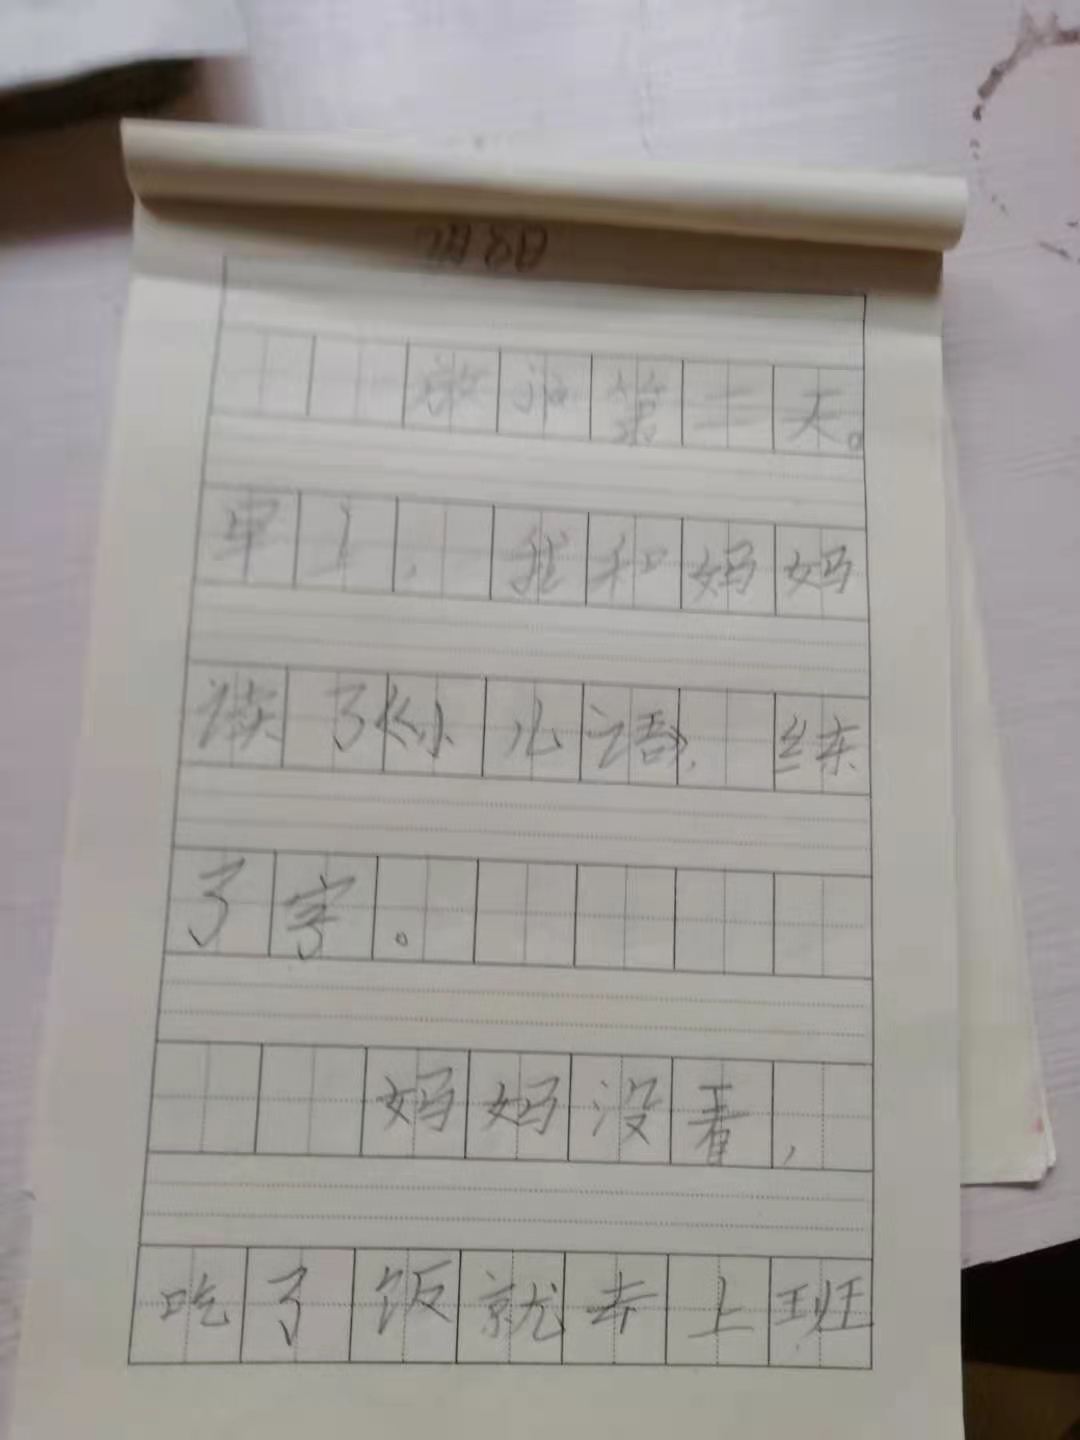 放 第二天。
早上，我和妈妈
读了《小儿语》，练
了字。
妈妈没看，
吃了饭就去上班